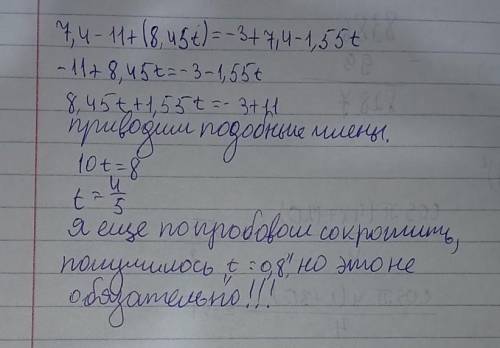 7,4-11+(8,45t)=-3+7,4-1,55t
-11+8,45t=-3-1,55t
8,45t+1,55t=-3+11
приводим подобные члены.
10t=8
t=4/5
Я еще попробовал сократить,
получилось "t=0,8", но это не
обязательно!!!